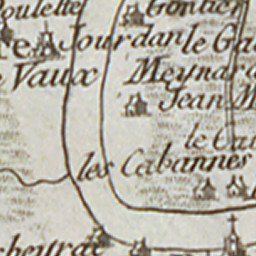 oulette
Gontier
Jourdan le Ga
Vaux
Meynard
Jean M
le Cai
les Cabannes
cheyrac